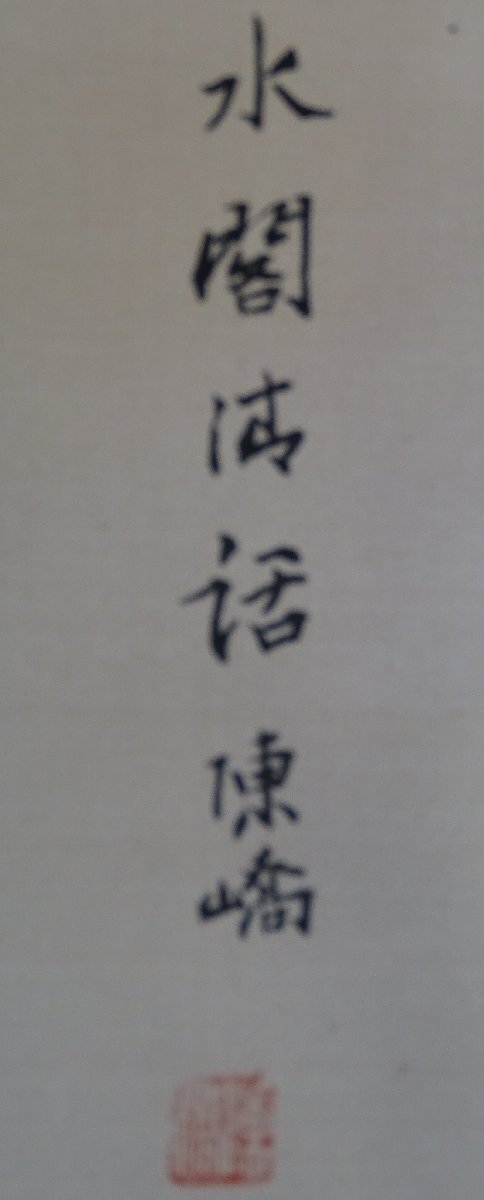 水閣清話 陳嶠